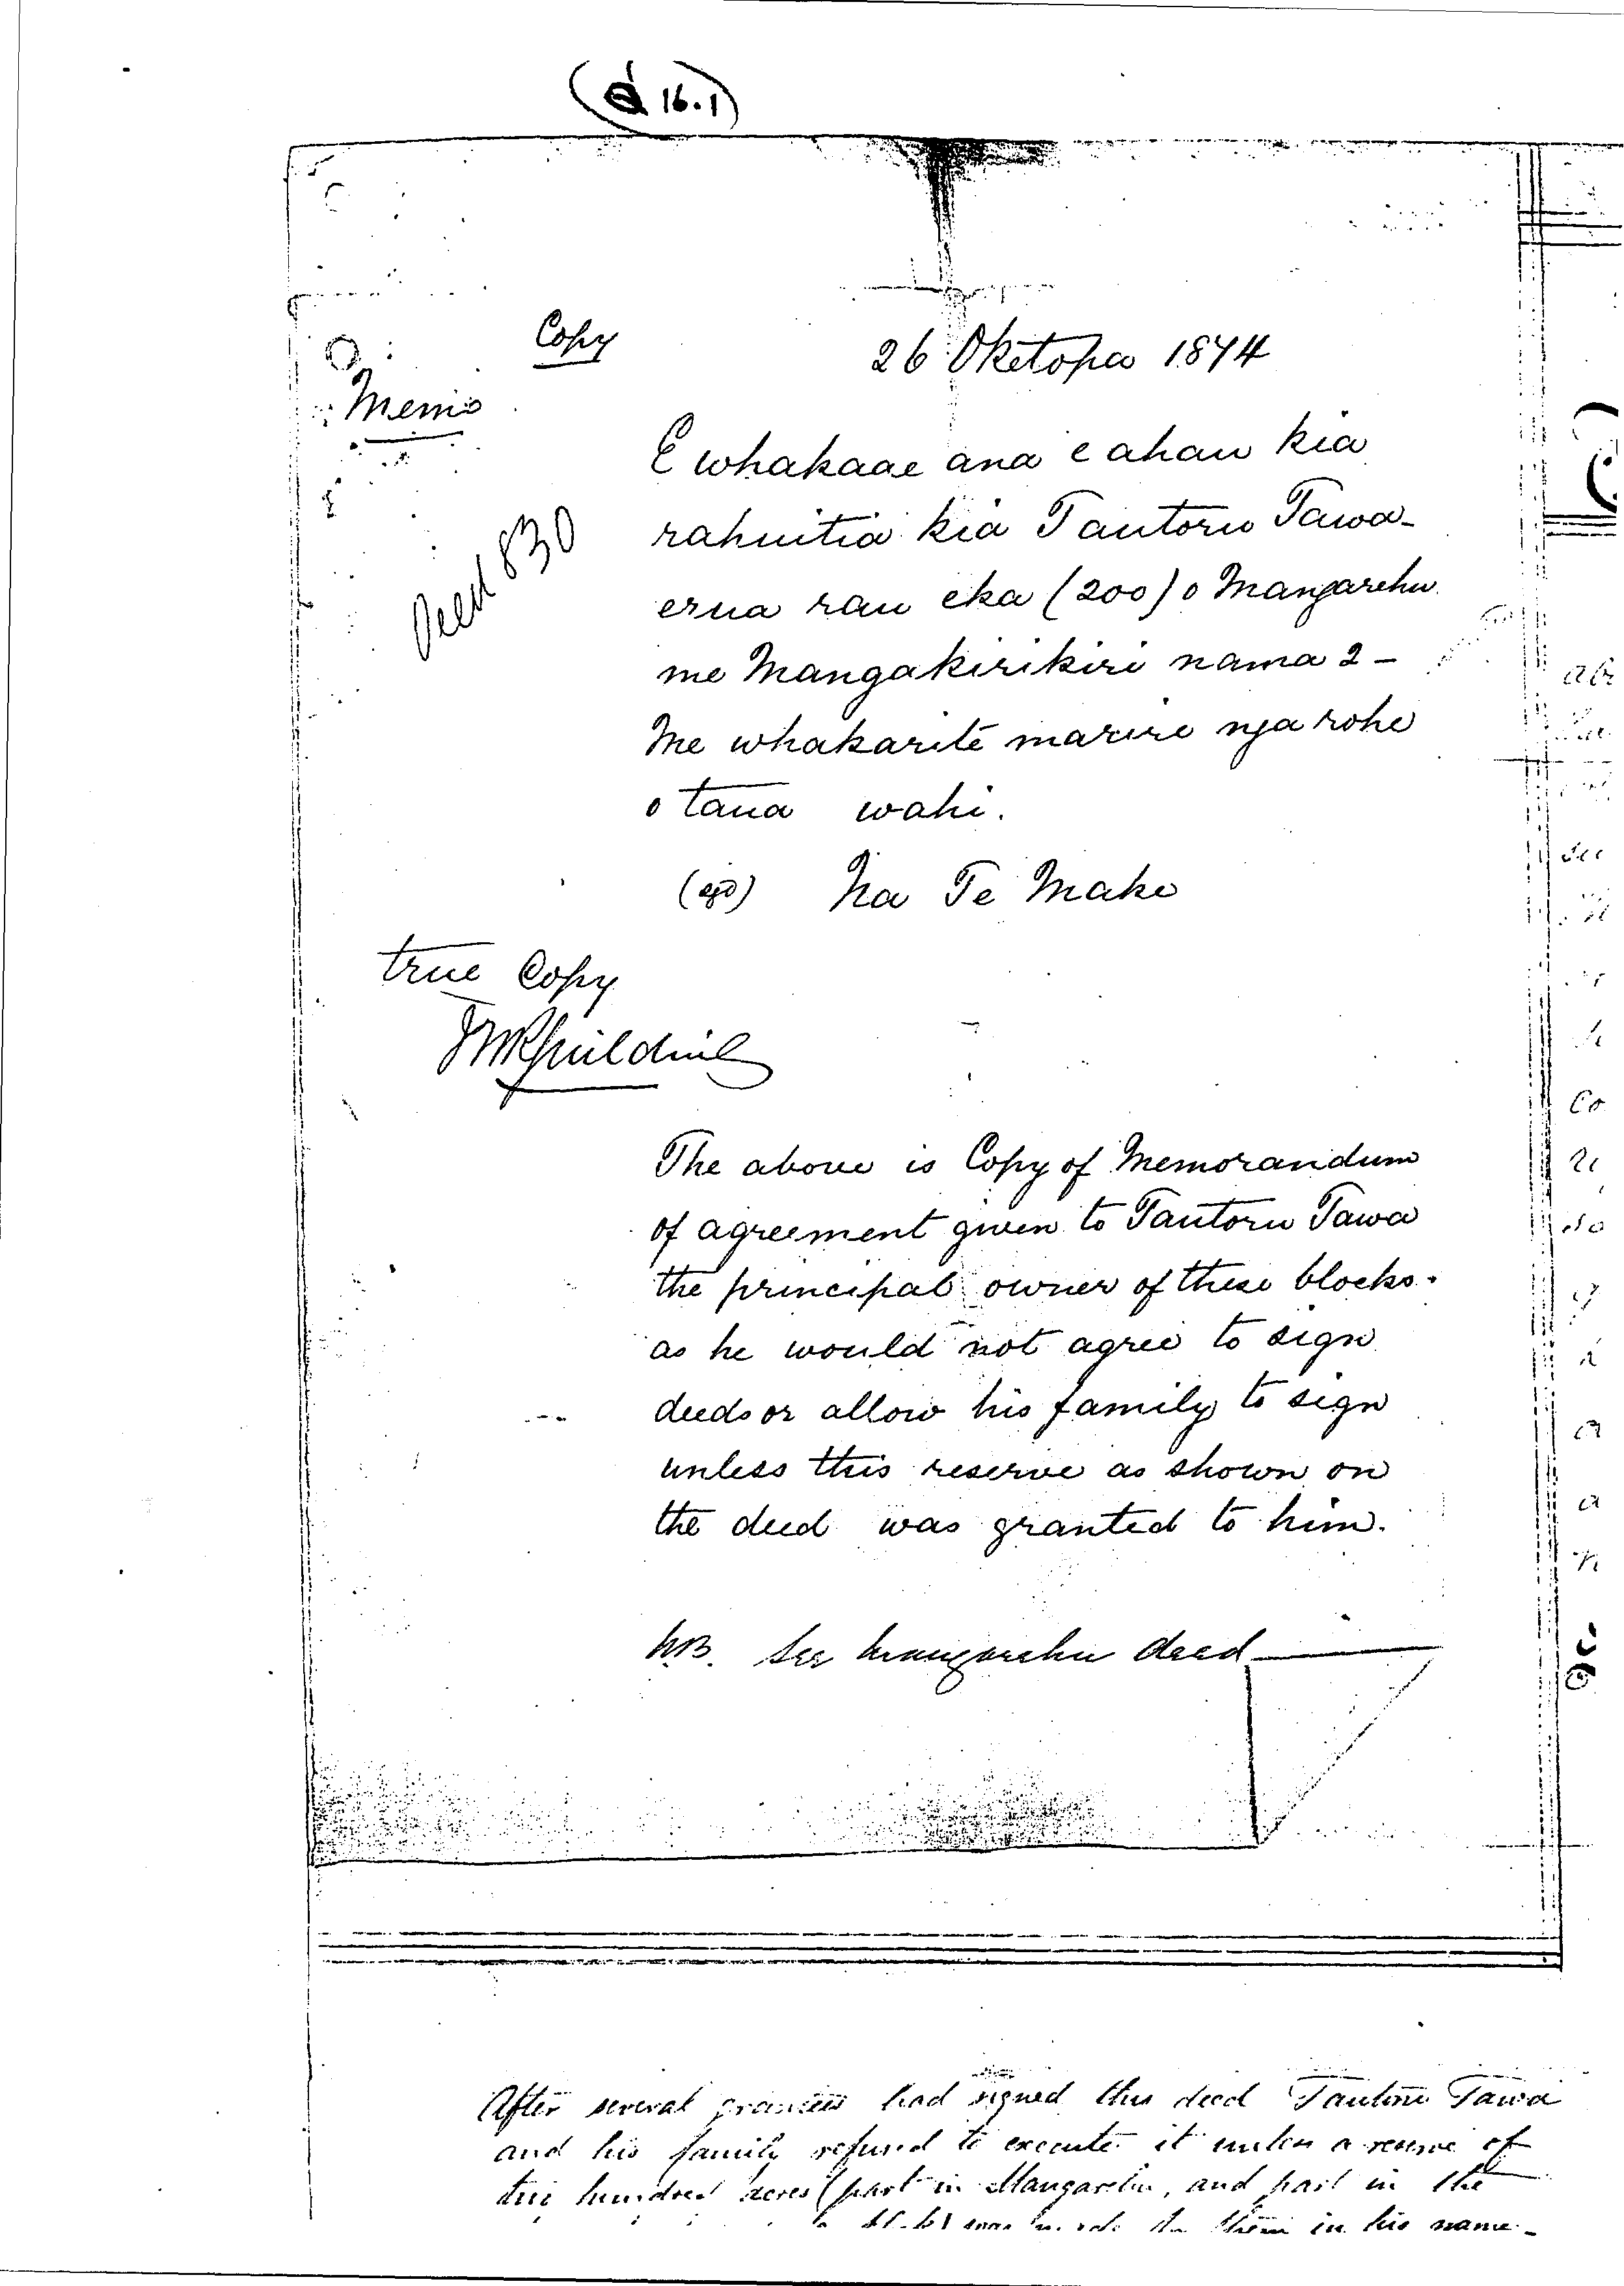 16.1)
Copy
26 Oketopa 1874
Memo
E whakaae ana e ahau kia
Deed 830
rahuitia kia Tautoru Tawa-
erua rau eka (200) o Mangarehu
me Mangakirikiri nama 2 -
Me whakarite marire nga rohe
o tana wahi.
Na Te Make
true Copy
The above is Copy of Memorandum
of agreement given to Tautoru Tawa
the principal owner of these blocks.
as he would not agree to sign
deeds or allow his family to sign
unless this reserve as shown on
the deed was granted to him.
NB. See Mangarehu deed
After several grantees had signed this deed Tautoru Tawa
and his family refused to execute it unless a reserve of
two hundred acres (part in Mangarehu, and part in the
them in his name -